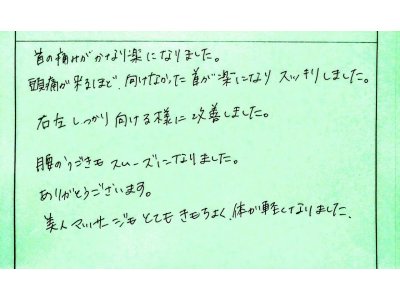 首の痛みがかなり楽になりました。
頭痛が来るほど、向けなかった首が楽になりスッキリしました。
右左しっかり向ける様に改善しました。
腰のうごきもスムーズになりました。
ありがとうございます。
美人マッサージもとてもきもちよく、体が軽くなりました。